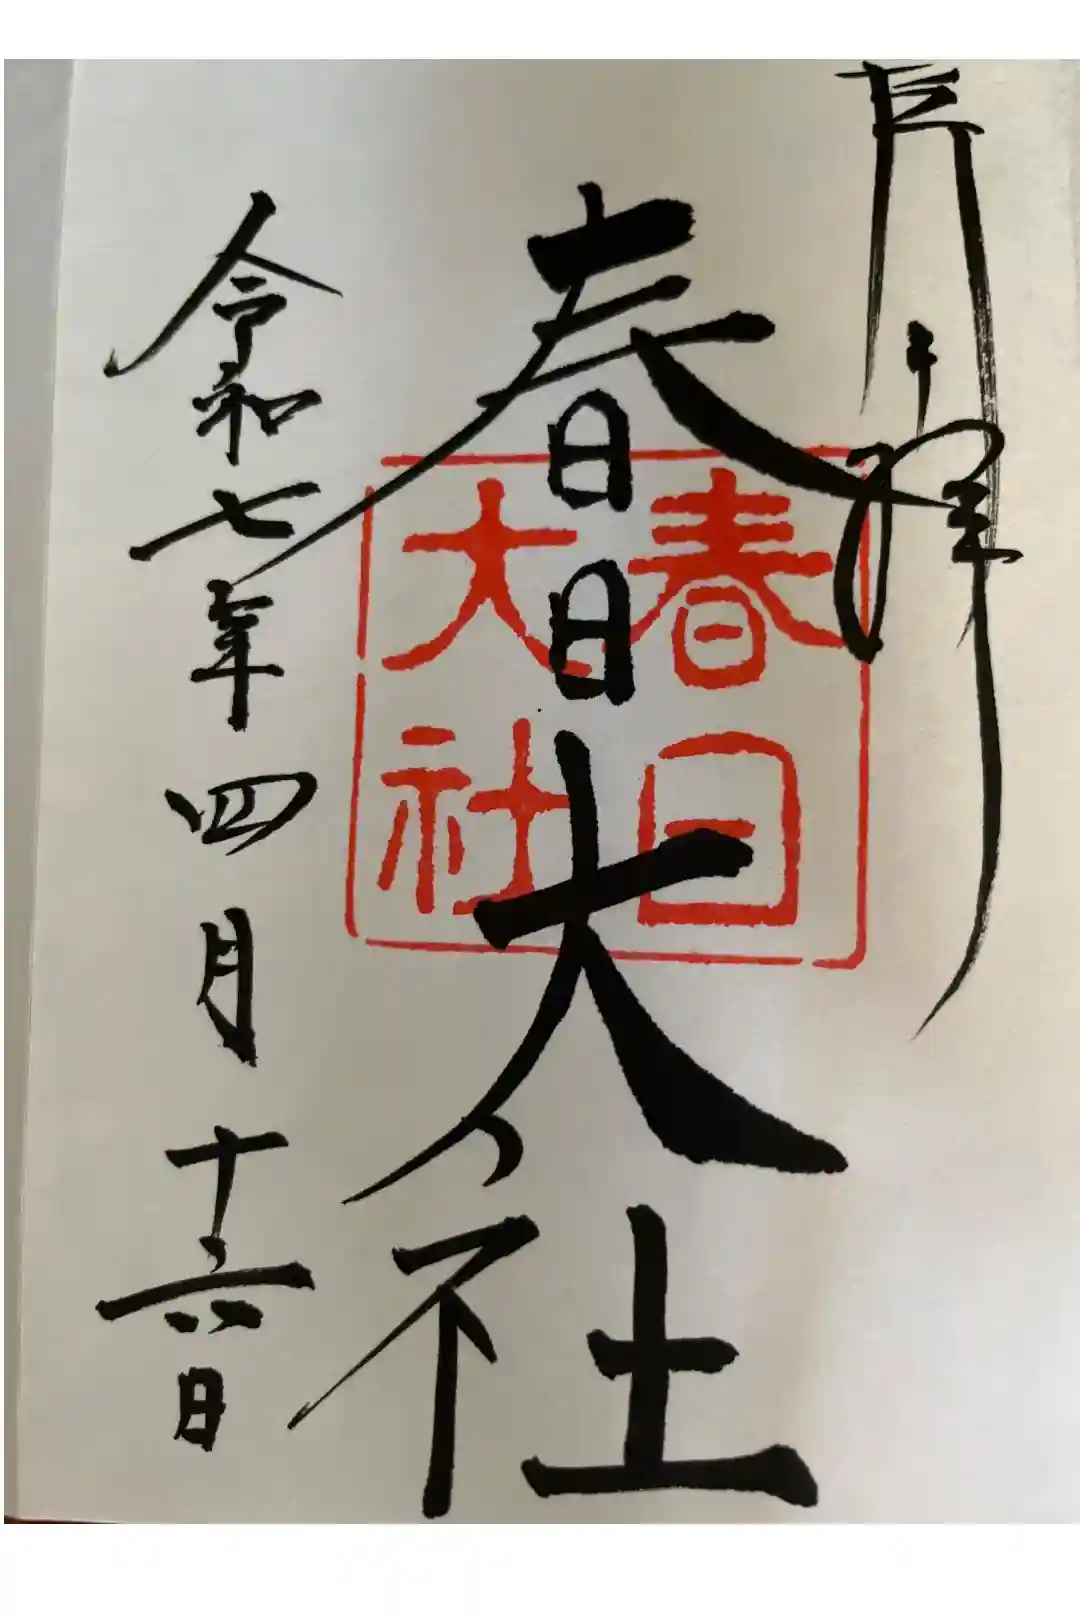 奉拝
春日大社
令和七年四月十六日
春日
大社